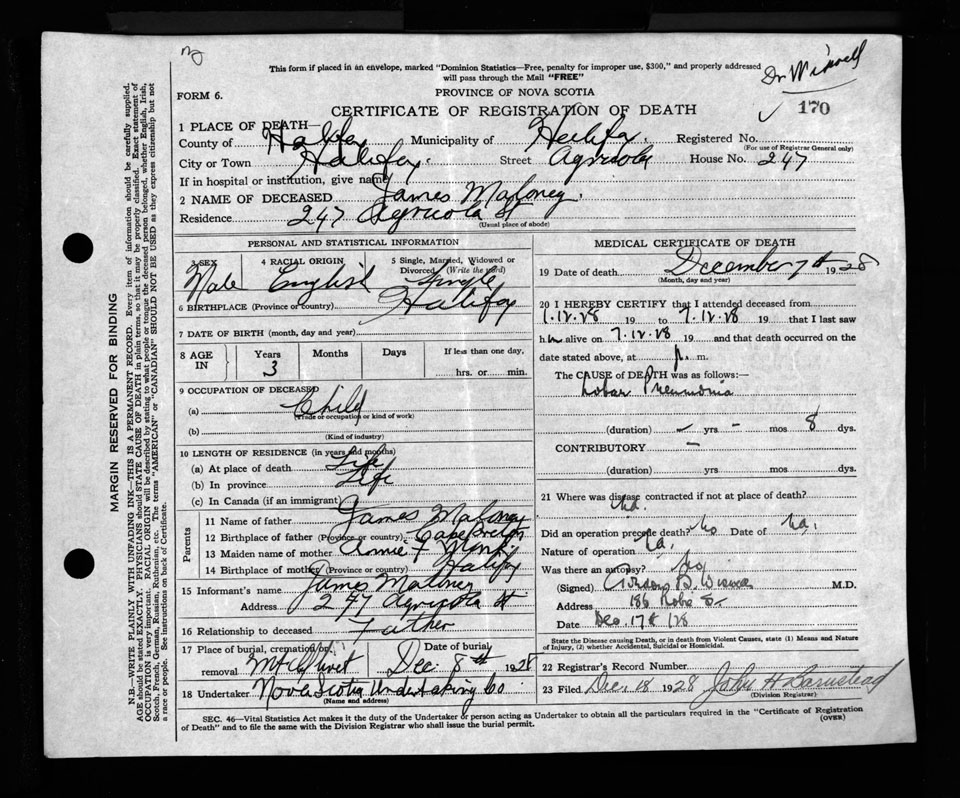 This form if placed in an envelope, marked "Dominion Statistics—Free, penalty for improper use, $300," and properly addressed
will pass through the Mail "FREE"
Dr Wiswell
FORM 6.
PROVINCE OF NOVA SCOTIA
CERTIFICATE OF REGISTRATION OF DEATH
✓ 170
1 PLACE OF DEATH—
County of Halifax Municipality of Halifax. Registered No.
(For use of Registrar General only)
City or Town Halifax. Street Agricola House No. 247
If in hospital or institution, give name
2 NAME OF DECEASED James Maloney.
Residence 247 Agricola St
(Usual place of abode)
PERSONAL AND STATISTICAL INFORMATION
3 SEX 4 RACIAL ORIGIN 5 Single, Married, Widowed or
Divorced (Write the word)
Male English Single
6 BIRTHPLACE (Province or country) Halifax
7 DATE OF BIRTH (month, day and year)
8 AGE IN Years Months Days If less than one day,
3 hrs. or min.
9 OCCUPATION OF DECEASED
(a) Child
(Trade or occupation or kind of work)
(b)
(Kind of industry)
10 LENGTH OF RESIDENCE (in years and months)
(a) At place of death Life
(b) In province Life
(c) In Canada (if an immigrant)
Parents
11 Name of father James Maloney
12 Birthplace of father (Province or country) Cape Breton
13 Maiden name of mother Annie
14 Birthplace of mother (Province or country) Halifax
15 Informant's name James Maloney
Address 247 Agricola St
16 Relationship to deceased Father
17 Place of burial, cremation, or Date of burial
removal Mt Olivet Dec. 8th 1928
18 Undertaker Nova Scotia Undertaking Co.
(Name and address)
MEDICAL CERTIFICATE OF DEATH
19 Date of death December 7th 1928
(Month, day and year)
20 I HEREBY CERTIFY that I attended deceased from
1.12.28 19 to 7.12.28 19 that I last saw
him alive on 7.12.28 19 and that death occurred on the
date stated above, at p. m.
The CAUSE of DEATH was as follows:—
Lobar Pneumonia
(duration) – yrs – mos 8 dys.
CONTRIBUTORY –
(duration) yrs. mos dys.
21 Where was disease contracted if not at place of death?
na.
Did an operation precede death? No Date of na.
Nature of operation na.
Was there an autopsy? No
(Signed) Gordon B. Wiswell M.D.
Address 186 Robie St
Date Dec. 17th /28
State the Disease causing Death, or in death from Violent Causes, state (1) Means and Nature
of Injury, (2) whether Accidental, Suicidal or Homicidal.
22 Registrar's Record Number
23 Filed Dec 18 1928 John H Barnstead
(Division Registrar)
SEC. 46—Vital Statistics Act makes it the duty of the Undertaker or person acting as Undertaker to obtain all the particulars required in the "Certificate of Registration
of Death" and to file the same with the Division Registrar who shall issue the burial permit.
(OVER)
MARGIN RESERVED FOR BINDING
N.B.—WRITE PLAINLY WITH UNFADING INK—THIS IS A PERMANENT RECORD. Every item of information should be carefully supplied.
AGE should be stated EXACTLY. PHYSICIANS should STATE CAUSE OF DEATH in plain terms, so that it may be properly classified. Exact statement of
OCCUPATION is very important. RACIAL ORIGIN will be described by stating to what people or tongue the deceased person belonged, whether English, Irish,
Scotch, French, German, Russian, Ruthenian, etc. The terms "AMERICAN" or "CANADIAN" SHOULD NOT BE USED as they express citizenship but not
a race or people. See instructions on back of Certificate.